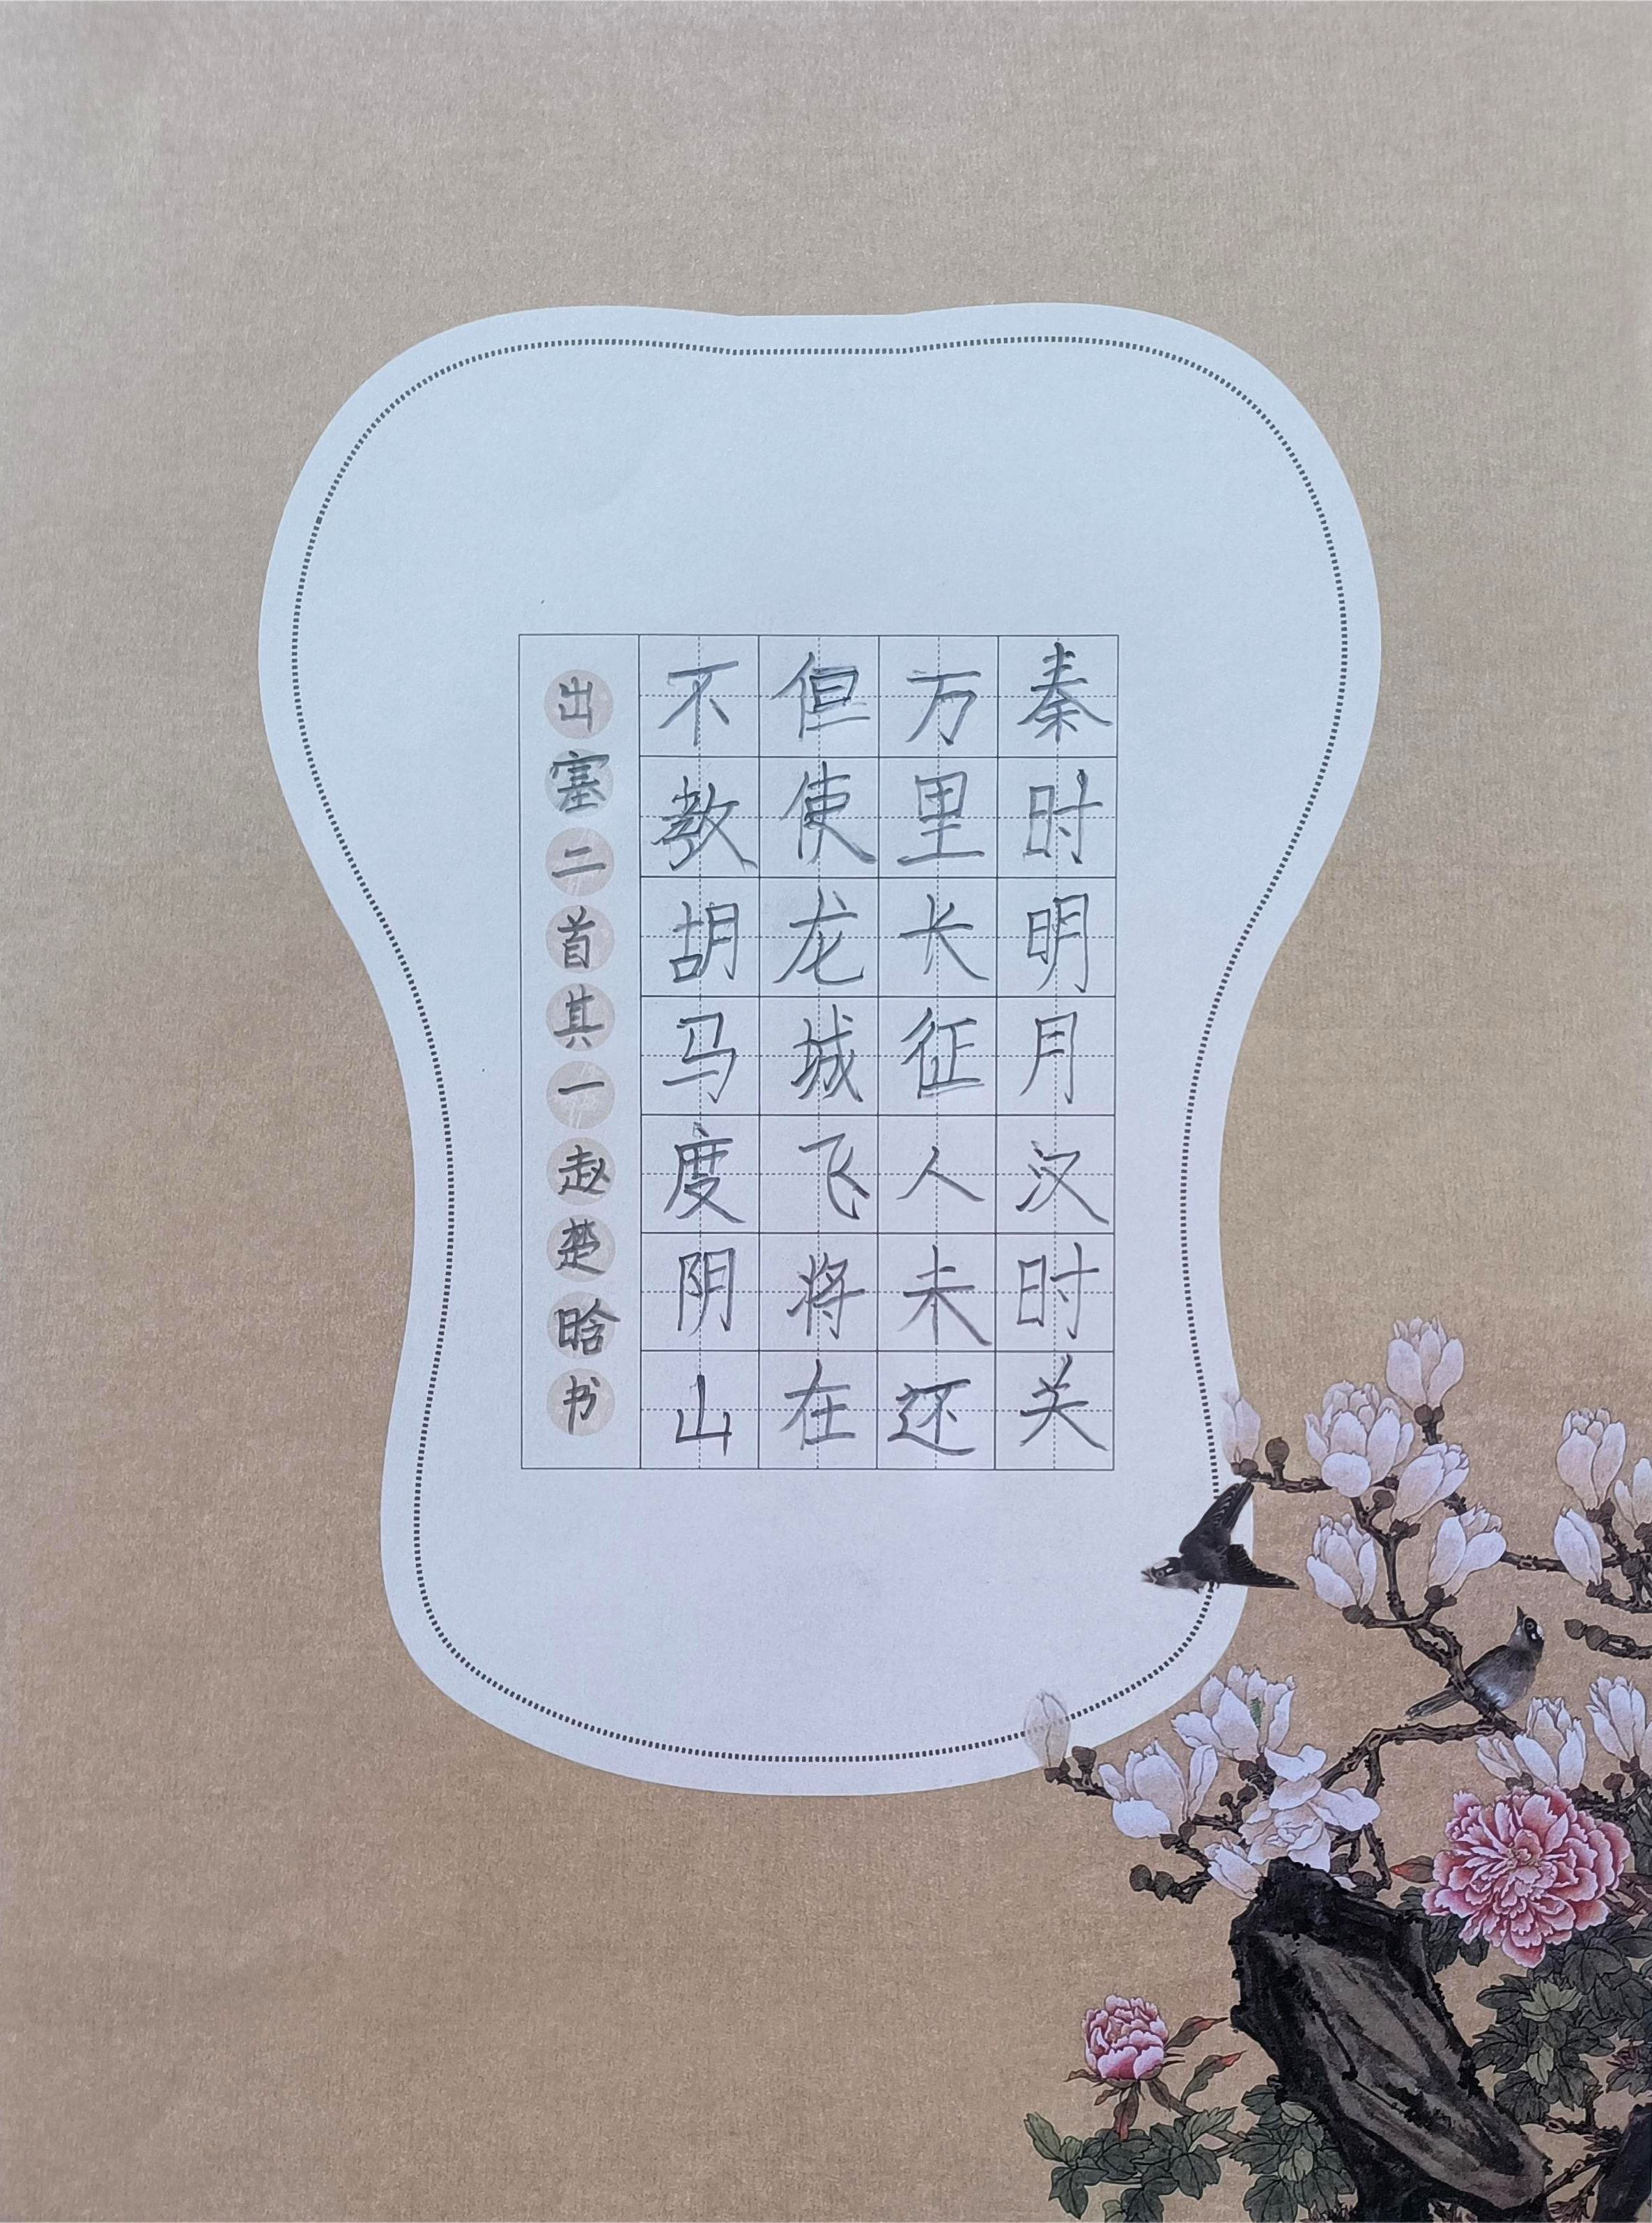 秦时明月汉时关
万里长征人未还
但使龙城飞将在
不教胡马度阴山
出塞二首其一赵楚晗书